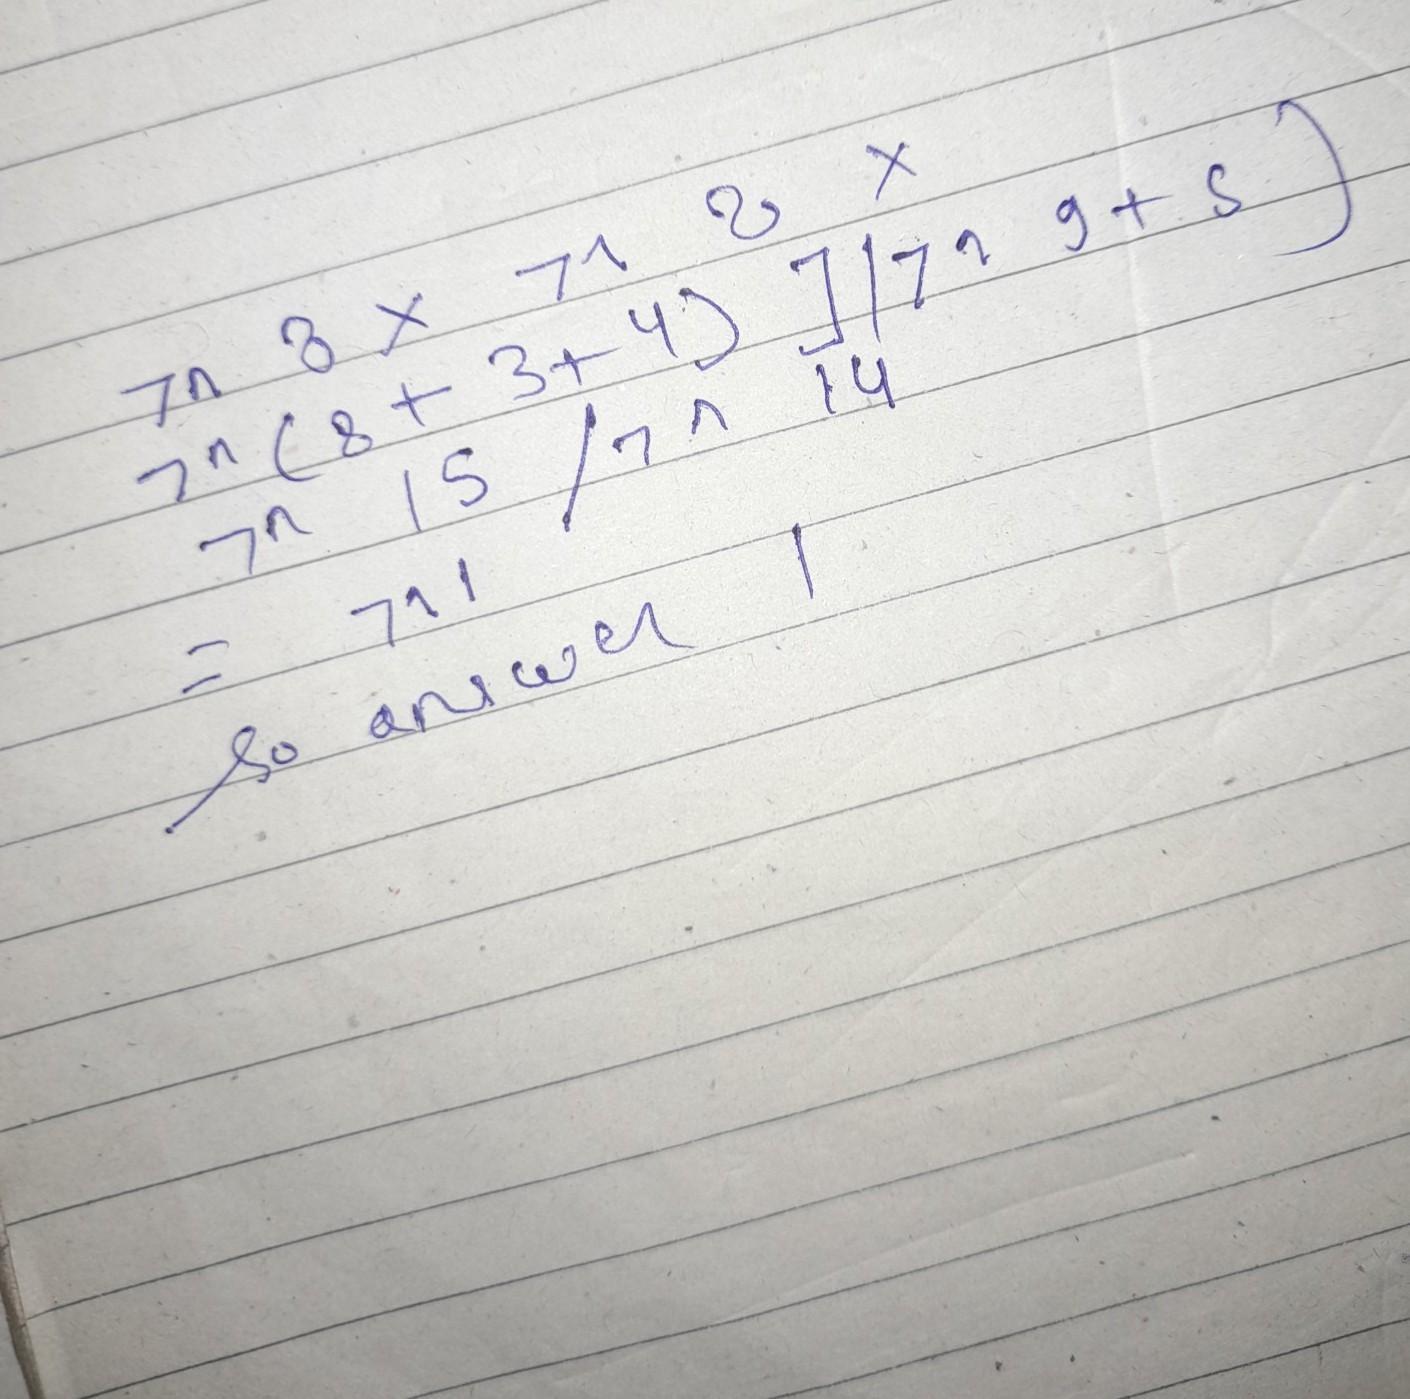 7^ 3 x 7^ 2 x
7^ (8 + 3 + 4) ] / 7^ 9 + 5 )
7^ 15 / 7^ 14
= 7^1
So answer 1